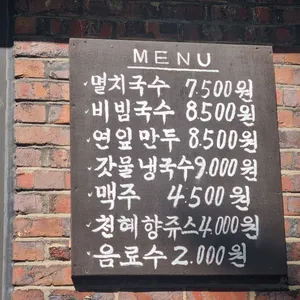 MENU
멸치국수 7.500원
비빔국수 8.500원
연잎만두 8.500원
갓물냉국수 9.000원
맥주 4.500원
천혜향쥬스 4.000원
음료수 2.000원